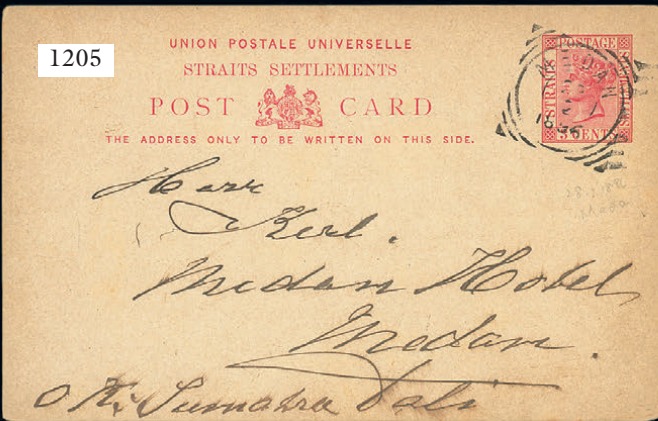 1205
UNION POSTALE UNIVERSELLE
STRAITS SETTLEMENTS
POST CARD
THE ADDRESS ONLY TO BE WRITTEN ON THIS SIDE.
STRAITS
POSTAGE
CENTS
MEDAN
Herr
Kerl.
Medan Hotel
Medan.
Sumatra Deli